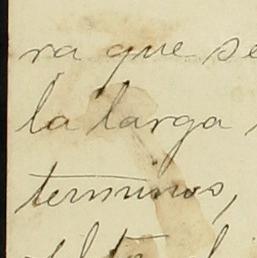 ra que se
la larga
terminos,